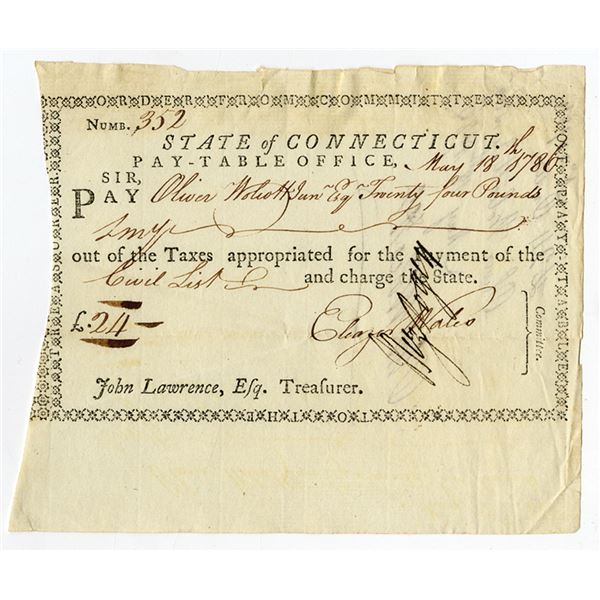 ORDER FROM COMMITTEE
OF PAY-TABLE
TO THE
TREASURER.
NUMB. 352
STATE of CONNECTICUT.
PAY-TABLE OFFICE, May 18th 1786
SIR,
PAY Oliver Wolcott Junr Esqr Twenty four Pounds
LMy
out of the Taxes appropriated for the Payment of the
Civil List and charge the State.
£.24
Eleazer Wales
Committee.
John Lawrence, Esq. Treasurer.